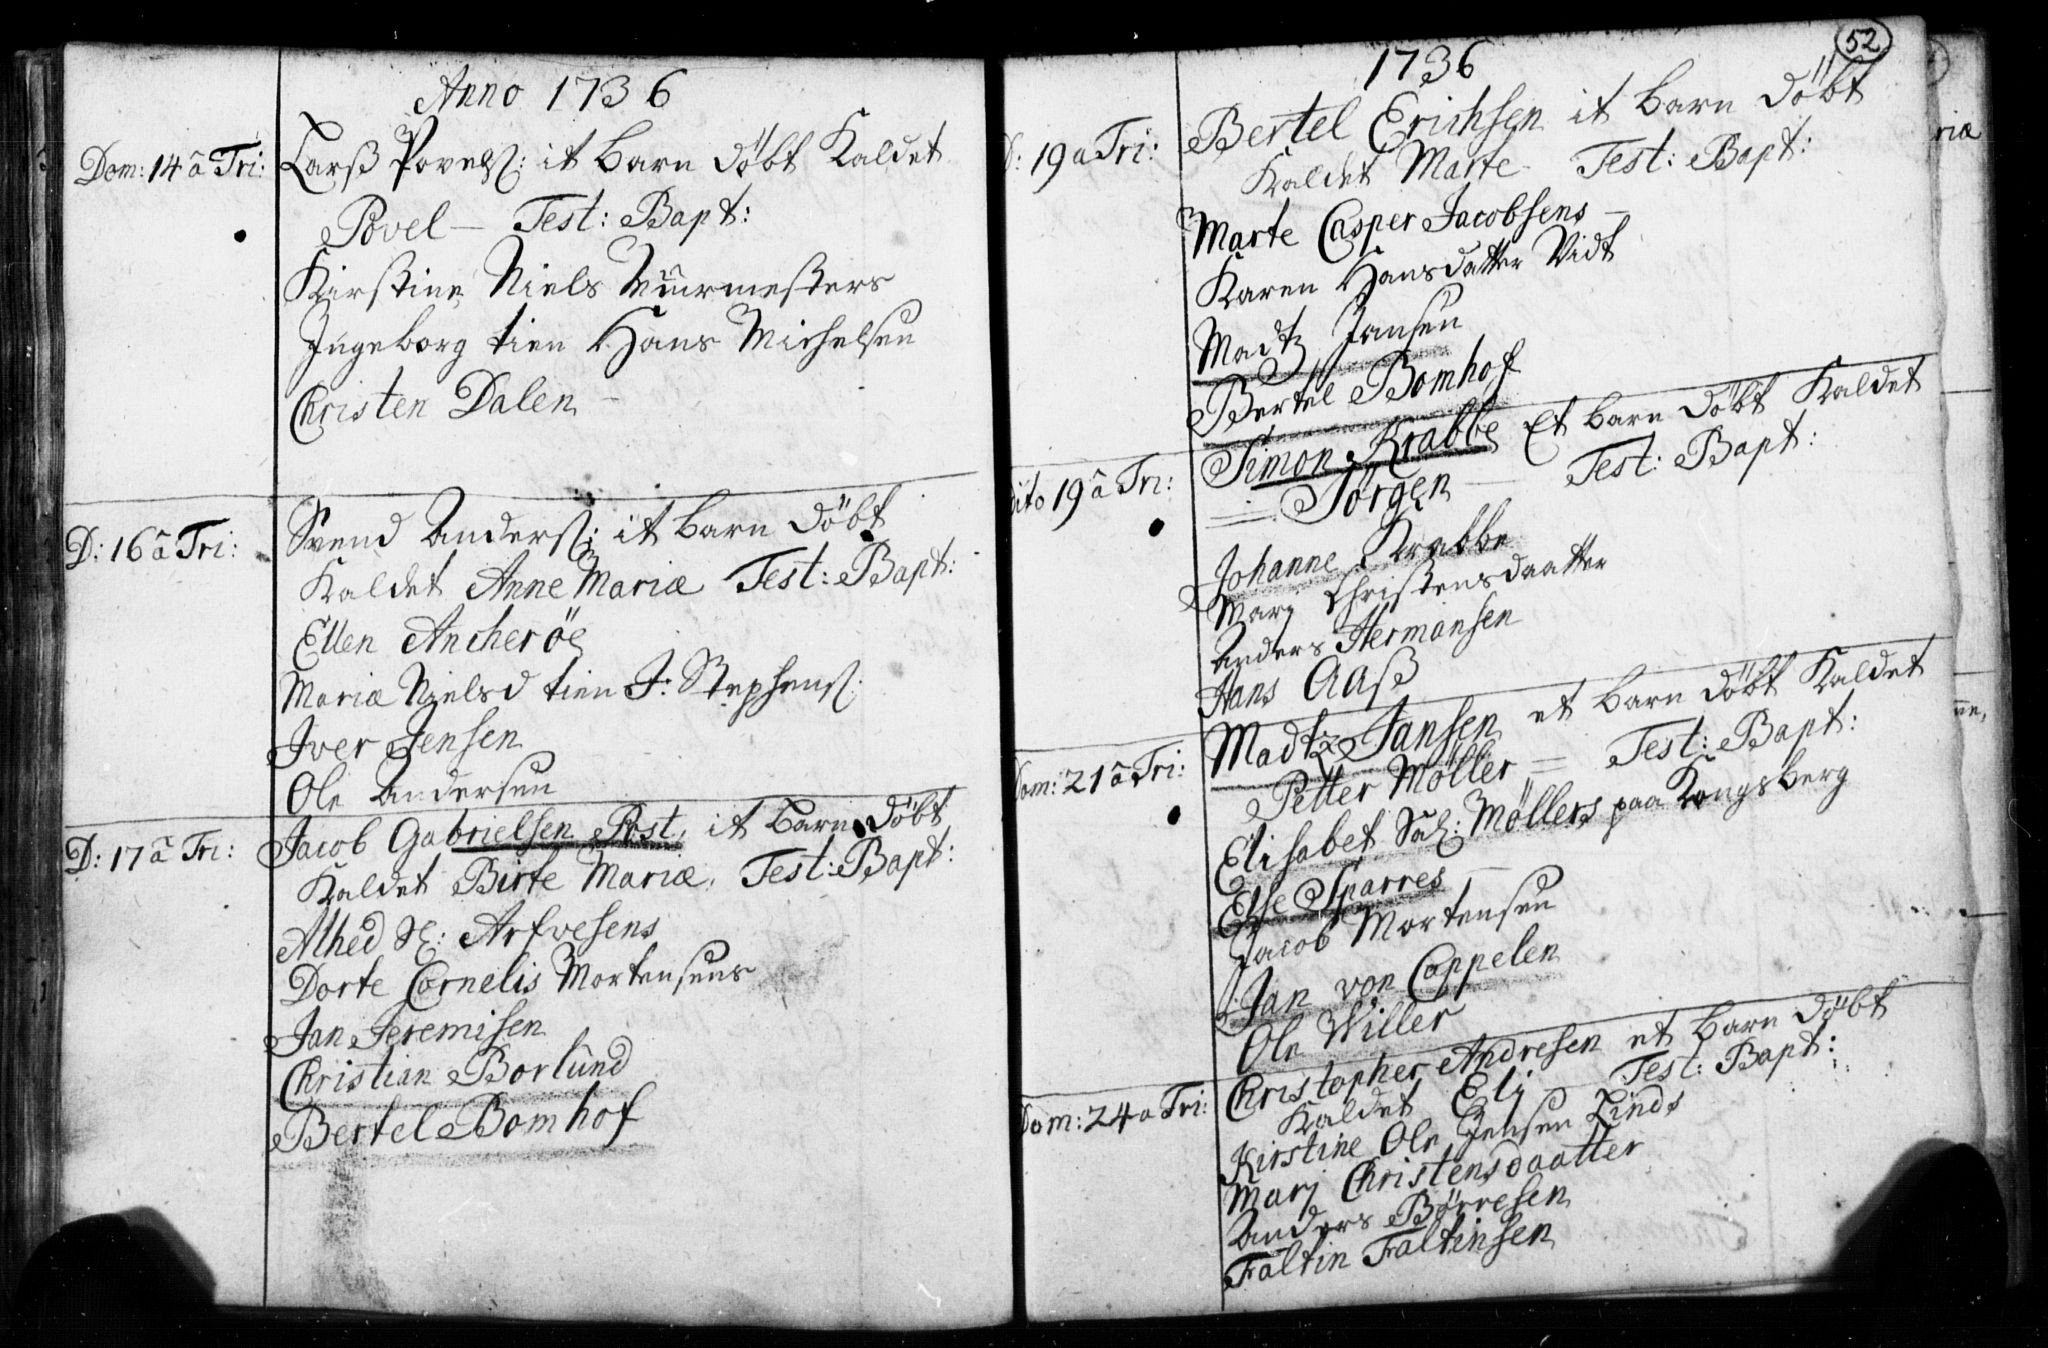 Anno 1736
Dom: 14 â Tri: Larß Povels: it barn döbt Kaldet
Povel — Test: Bapt:
Kirstine Niels Muurmesters
Ingeborg tien Hans Michelsen
Christen Dalen
D: 16 â Tri: Svend Anders: it barn döbt
Kaldet Anne Mariæ Test: Bapt:
Ellen Ancheröe
Mariæ Nielsd tien J: Stephens:
Iver Jensen
Ole Andersen
D: 17 â Tri: Jacob Gabrielsen Post, it barn döbt
Kaldet Birte Mariæ, Test: Bapt:
Alhed Sl: Arfvesens
Dorte Cornelis Mortensens
Jan Jeremisen
Christian Borlund
Bertel Bomhof
52
1736
D: 19 a Tri: Bertel Erichsen it barn döbt
Kaldet Marte Test: Bapt:
Marte Casper Jacobsens —
Karen Hansdatter Vidt
Madtz Jansen
Bertel Bomhof
dito 19 â Tri: Simon Krabbe Et barn döbt Kaldet
Jörgen — Test: Bapt:
Johanne Krabbe
Marj Christensdaatter
Anders Hermansen
Hans Aaß
Dom: 21 â Tri: Madtz Jansen et barn döbt Kaldet
Petter Möller = Test: Bapt:
Elisabet Sal: Möllers paa Kongsberg
Else Sparres —
Jacob Mortensen
Jan von Cappelen
Ole Willer
Dom: 24 a Tri: Christopher Andresen et barn döbt
Kaldet Elj Test: Bapt:
Kirstine Ole Jensen Linds
Marj Christensdaatter
Anders Börresen
Faltin Faltinsen
riæ
ne,